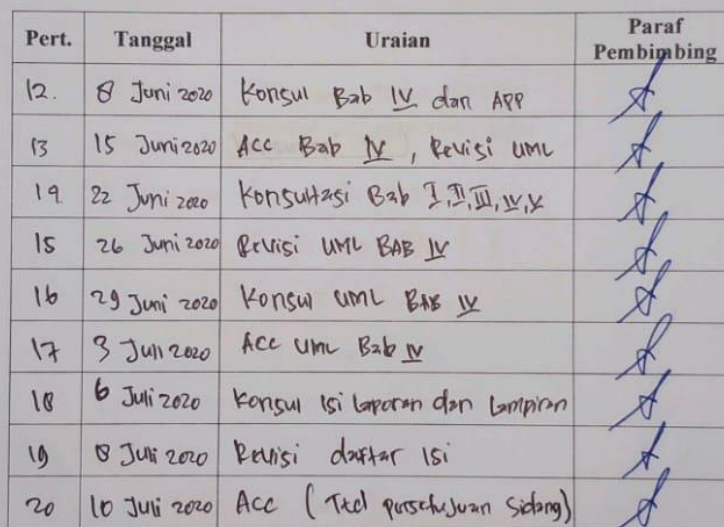 Pert. Tanggal Uraian Paraf Pembimbing
12. 8 Juni 2020 Konsul Bab IV dan APP
13 15 Juni 2020 Acc Bab IV, Revisi UML
14 22 Juni 2020 Konsultasi Bab I, II, III, IV, V
15 26 Juni 2020 Revisi UML BAB IV
16 29 Juni 2020 Konsul UML BAB IV
17 3 Juli 2020 Acc UML Bab IV
18 6 Juli 2020 Konsul Isi Laporan dan Lampiran
19 8 Juli 2020 Revisi daftar Isi
20 10 Juli 2020 Acc (Ttd persetujuan Sidang)